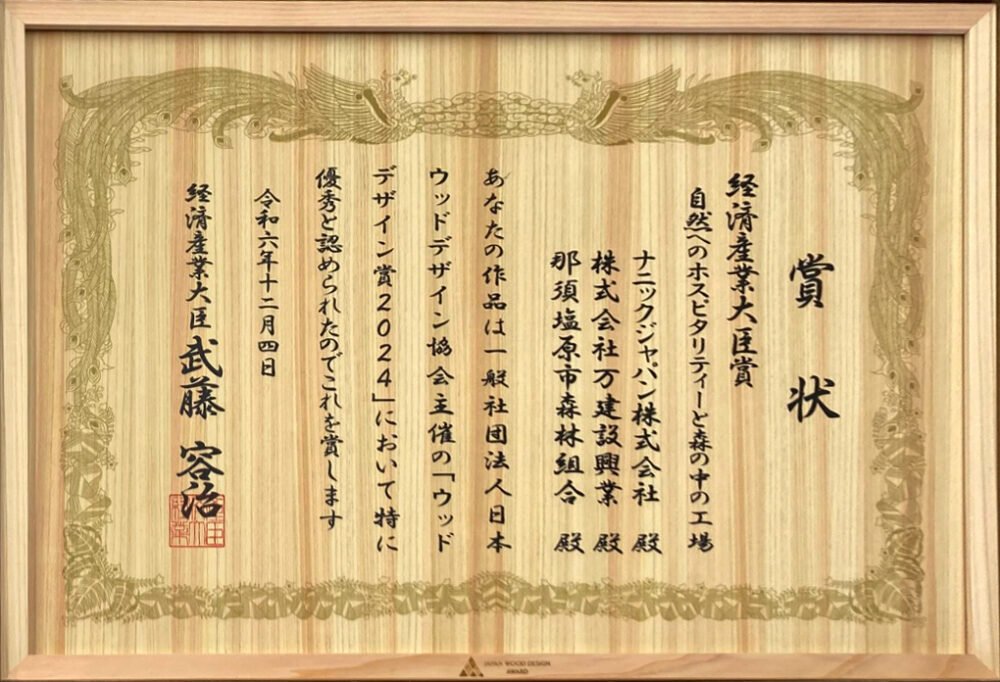 賞状
経済産業大臣賞
自然へのホスピタリティーと森の中の工場
ナニックジャパン株式会社 殿
株式会社万建設興業 殿
那須塩原市森林組合 殿
あなたの作品は一般社団法人日本
ウッドデザイン協会主催の「ウッド
デザイン賞2024」において特に
優秀と認められたのでこれを賞します
令和六年十二月四日
経済産業大臣 武藤 容治
JAPAN WOOD DESIGN
AWARD